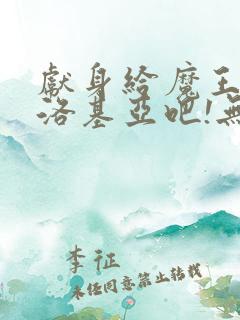 獻身給魔王
洛基亞吧!無
李征
未经同意禁止转载